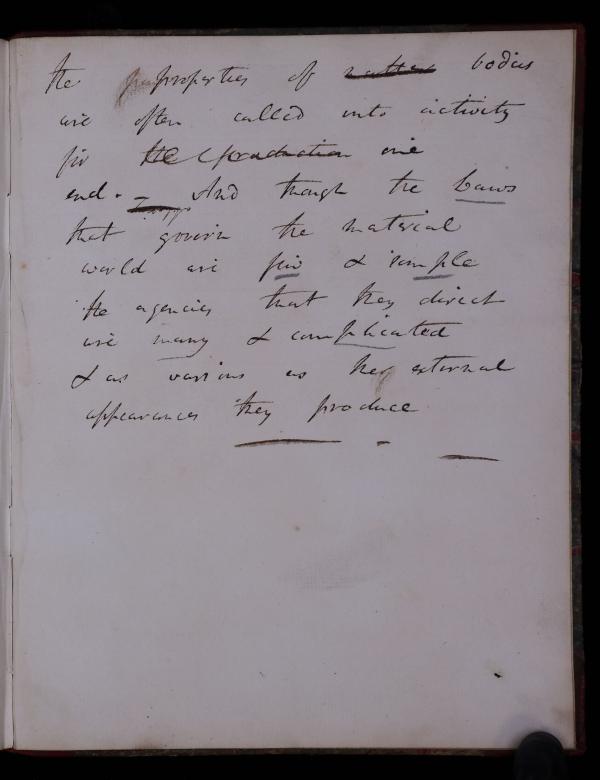 the properties of matter bodies
are often called into activity
for the production one
end. – And though the Laws
that govern the material
world are few & simple
the agencies that they direct
are many & complicated
& as various as the external
appearances they produce